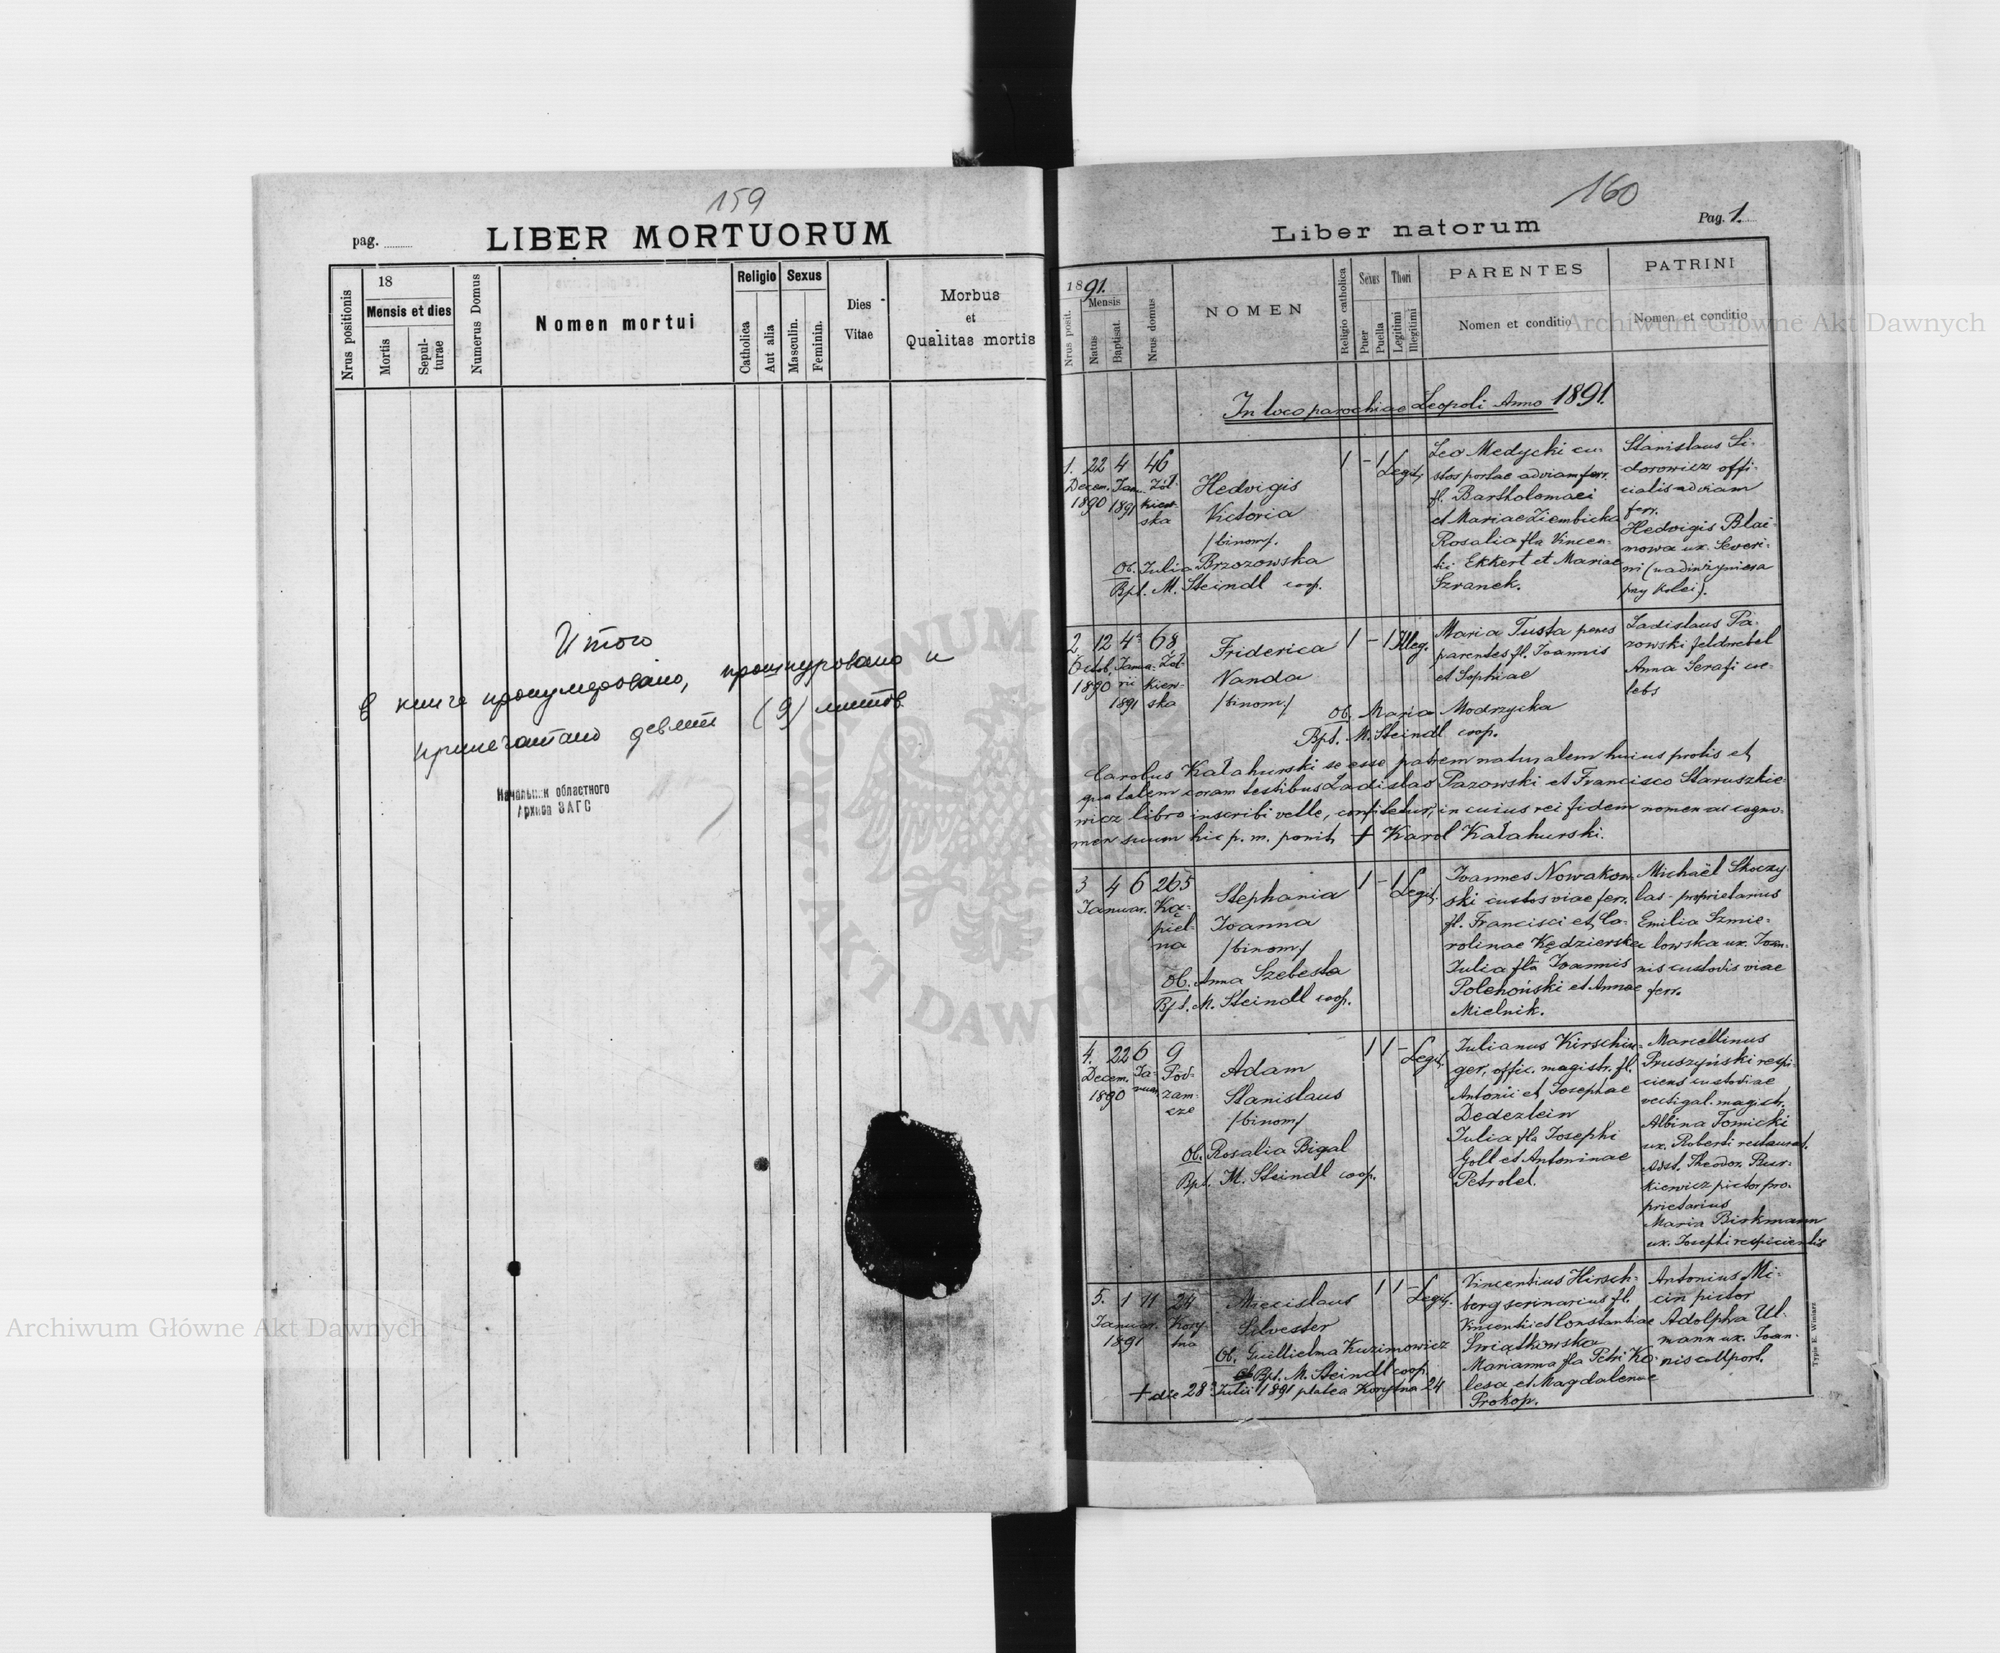 159
pag.
LIBER MORTUORUM
Nrus positionis
18
Mensis et dies
Mortis
Sepul-
turae
Numerus Domus
Nomen mortui
Religio
Catholica
Aut alia
Sexus
Masculin.
Feminin.
Dies
Vitae
Morbus
et
Qualitas mortis
Итого
В книге пронумеровано, прошнуровано и
припечатано девять (9) листов
Начальник областного
Архива ЗАГС
160
Pag. 1.
Liber natorum
Nrus posit.
1891.
Mensis
Natus
Baptisat.
Nrus domus
NOMEN
Religio catholica
Sexus
Puer
Puella
Thori
Legitimi
Illegitimi
PARENTES
Nomen et conditio
PATRINI
Nomen et conditio
In loco parochiae Leopoli Anno 1891.
1. 22 4 46
Decem. Janu. Żół-
1890 1891 kiew-
ska
Hedvigis
Victoria
/binom/.
Ob. Julia Brzozowska
Bpt. M. Steindl coop.
1 - 1 Legit.
Leo Medycki cu-
stos portae ad viam ferr.
fl. Bartholomaei
et Mariae Ziembicka
Rosalia fla Vincen-
tii Ekkert et Mariae
Szranek.
Stanislaus Si-
dorowicz offi-
cialis ad viam
ferr.
Hedvigis Blai-
mowa ux. Severi-
ni (nadinżyniera
przy kolei).
2. 12 4a 68
Octob. Janua- Żół-
1890 rii kiew-
1891 ska
Friderica
Vanda
/binom/
Ob. Maria Modrzycka
Bpt. M. Steindl coop.
1 - 1 Illeg.
Maria Tusta penes
parentes fl. Joannis
et Sophiae
Ladislaus Pa-
zowski feldwebel
Anna Serafi cae-
lebs
Carolus Kałahurski se esse patrem naturalem huius prolis et
qua talem coram testibus Ladislao Pazowski et Francisco Staruszkie-
wicz libro inscribi velle, confitetur, in cuius rei fidem nomen ac cogno-
men suum hic p. m. ponit + Karol Kałahurski.
3 4 6 265
Januar. Ką-
piel-
na
Stephania
Joanna
/binom/
Ob. Anna Szebesta
Bpt. M. Steindl coop.
1 - 1 Legit.
Joannes Nowakow-
ski custos viae ferr.
fl. Francisci et Ca-
rolinae Kędzierska
Julia fla Joannis
Polehoński et Annae
Mielnik.
Michaël Skoczy-
las - proprietarius
Emilia Szmie-
lowska ux. Joan-
nis custodis viae
ferr.
4. 22 6 9
Decem. Ja- Pod-
1890 nuar. zam-
cze
Adam
Stanislaus
/binom/
Ob. Rosalia Bigal
Bpt. M. Steindl coop.
1 1 - Legit.
Julianus Kirschin-
ger, offic. magistr. fl.
Antonii et Josephae
Dedezlein
Julia fla Josephi
Goll et Antoninae
Petrolel.
Marcellinus
Pruszyński respi-
ciens custodiae
vectigal. magistr.
Albina Tomicki
ux. Roberti restaurat.
Adst. Theodor. Bur-
kiewicz pictor pro-
prietarius
Maria Birkmann
ux. Josephi respicientis
5. 1 11 24
Januar. Kory-
1891 tna
Miecislaus
Silvester
Ob. Guillielma Kuzimowicz
Bpt. M. Steindl coop.
+ die 28a Julii 1891 platea Korytna 24
1 1 - Legit.
Vincentius Hirsch-
berg serinarius fl.
Vincentii et Constantiae
Swiątkowska
Marianna fla Petri Ko-
lesa et Magdalenae
Prokop.
Antonius Mi-
cin pictor
Adolpha Ul-
mann ux. Joan-
nis collport.
Typis E. Winiarz
Archiwum Główne Akt Dawnych
Archiwum Główne Akt Dawnych
ARCHIWUM
AKT DAWNYCH